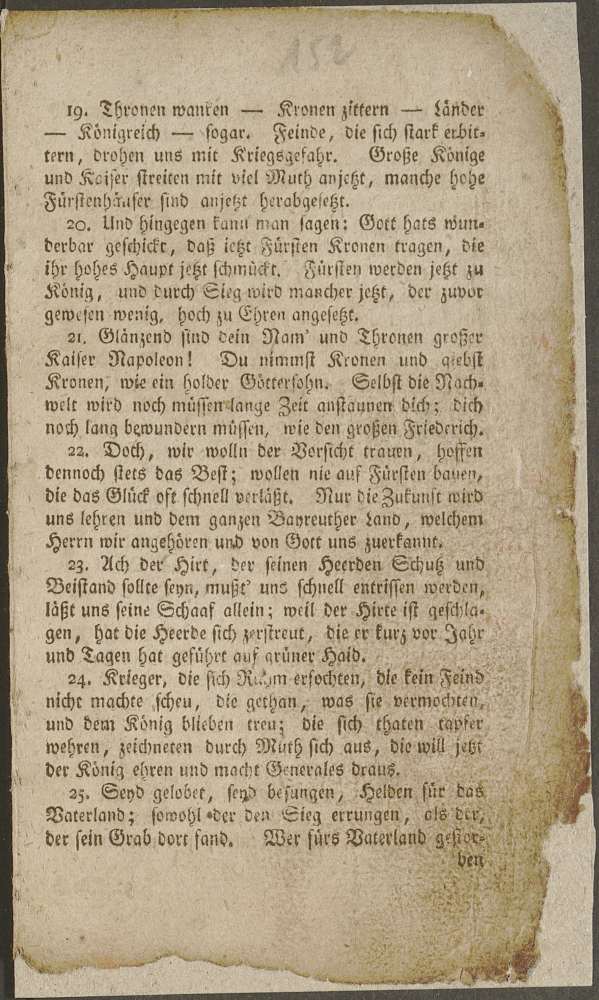 152
19. Thronen wanken — Kronen zittern — Länder
— Königreich — sogar. Feinde, die sich stark erbit-
tern, drohen uns mit Kriegsgefahr. Große Könige
und Kaiser streiten mit viel Muth anjetzt, manche hohe
Fürstenhäuser sind anjetzt herabgesetzt.
20. Und hingegen kann man sagen: Gott hats wun-
derbar geschickt, daß jetzt Fürsten Kronen tragen, die
ihr hohes Haupt jetzt schmückt. Fürsten werden jetzt zu
König, und durch Sieg wird mancher jetzt, der zuvor
gewesen wenig, hoch zu Ehren angesetzt.
21. Glänzend sind dein Nam' und Thronen großer
Kaiser Napoleon! Du nimmst Kronen und giebst
Kronen, wie ein holder Göttersohn. Selbst die Nach-
welt wird noch müssen lange Zeit anstaunen dich; dich
noch lang bewundern müssen, wie den großen Friederich.
22. Doch, wir wolln der Vorsicht trauen, hoffen
dennoch stets das Best; wollen nie auf Fürsten bauen,
die das Glück oft schnell verläßt. Nur die Zukunft wird
uns lehren und dem ganzen Bayreuther Land, welchem
Herrn wir angehören und von Gott uns zuerkannt.
23. Ach der Hirt, der seinen Heerden Schutz und
Beistand sollte seyn, mußt' uns schnell entrissen werden,
läßt uns seine Schaaf allein; weil der Hirte ist geschla-
gen, hat die Heerde sich zerstreut, die er kurz vor Jahr
und Tagen hat geführt auf grüner Haid.
24. Krieger, die sich Ruhm erfochten, die kein Feind
nicht machte scheu, die gethan, was sie vermochten,
und dem König blieben treu; die sich thaten tapfer
wehren, zeichneten durch Muth sich aus, die will jetzt
der König ehren und macht Generales draus.
25. Seyd gelobet, seyd besungen, Helden für das
Vaterland; sowohl der den Sieg errungen, als der,
der sein Grab dort fand. Wer fürs Vaterland gestor-
ben